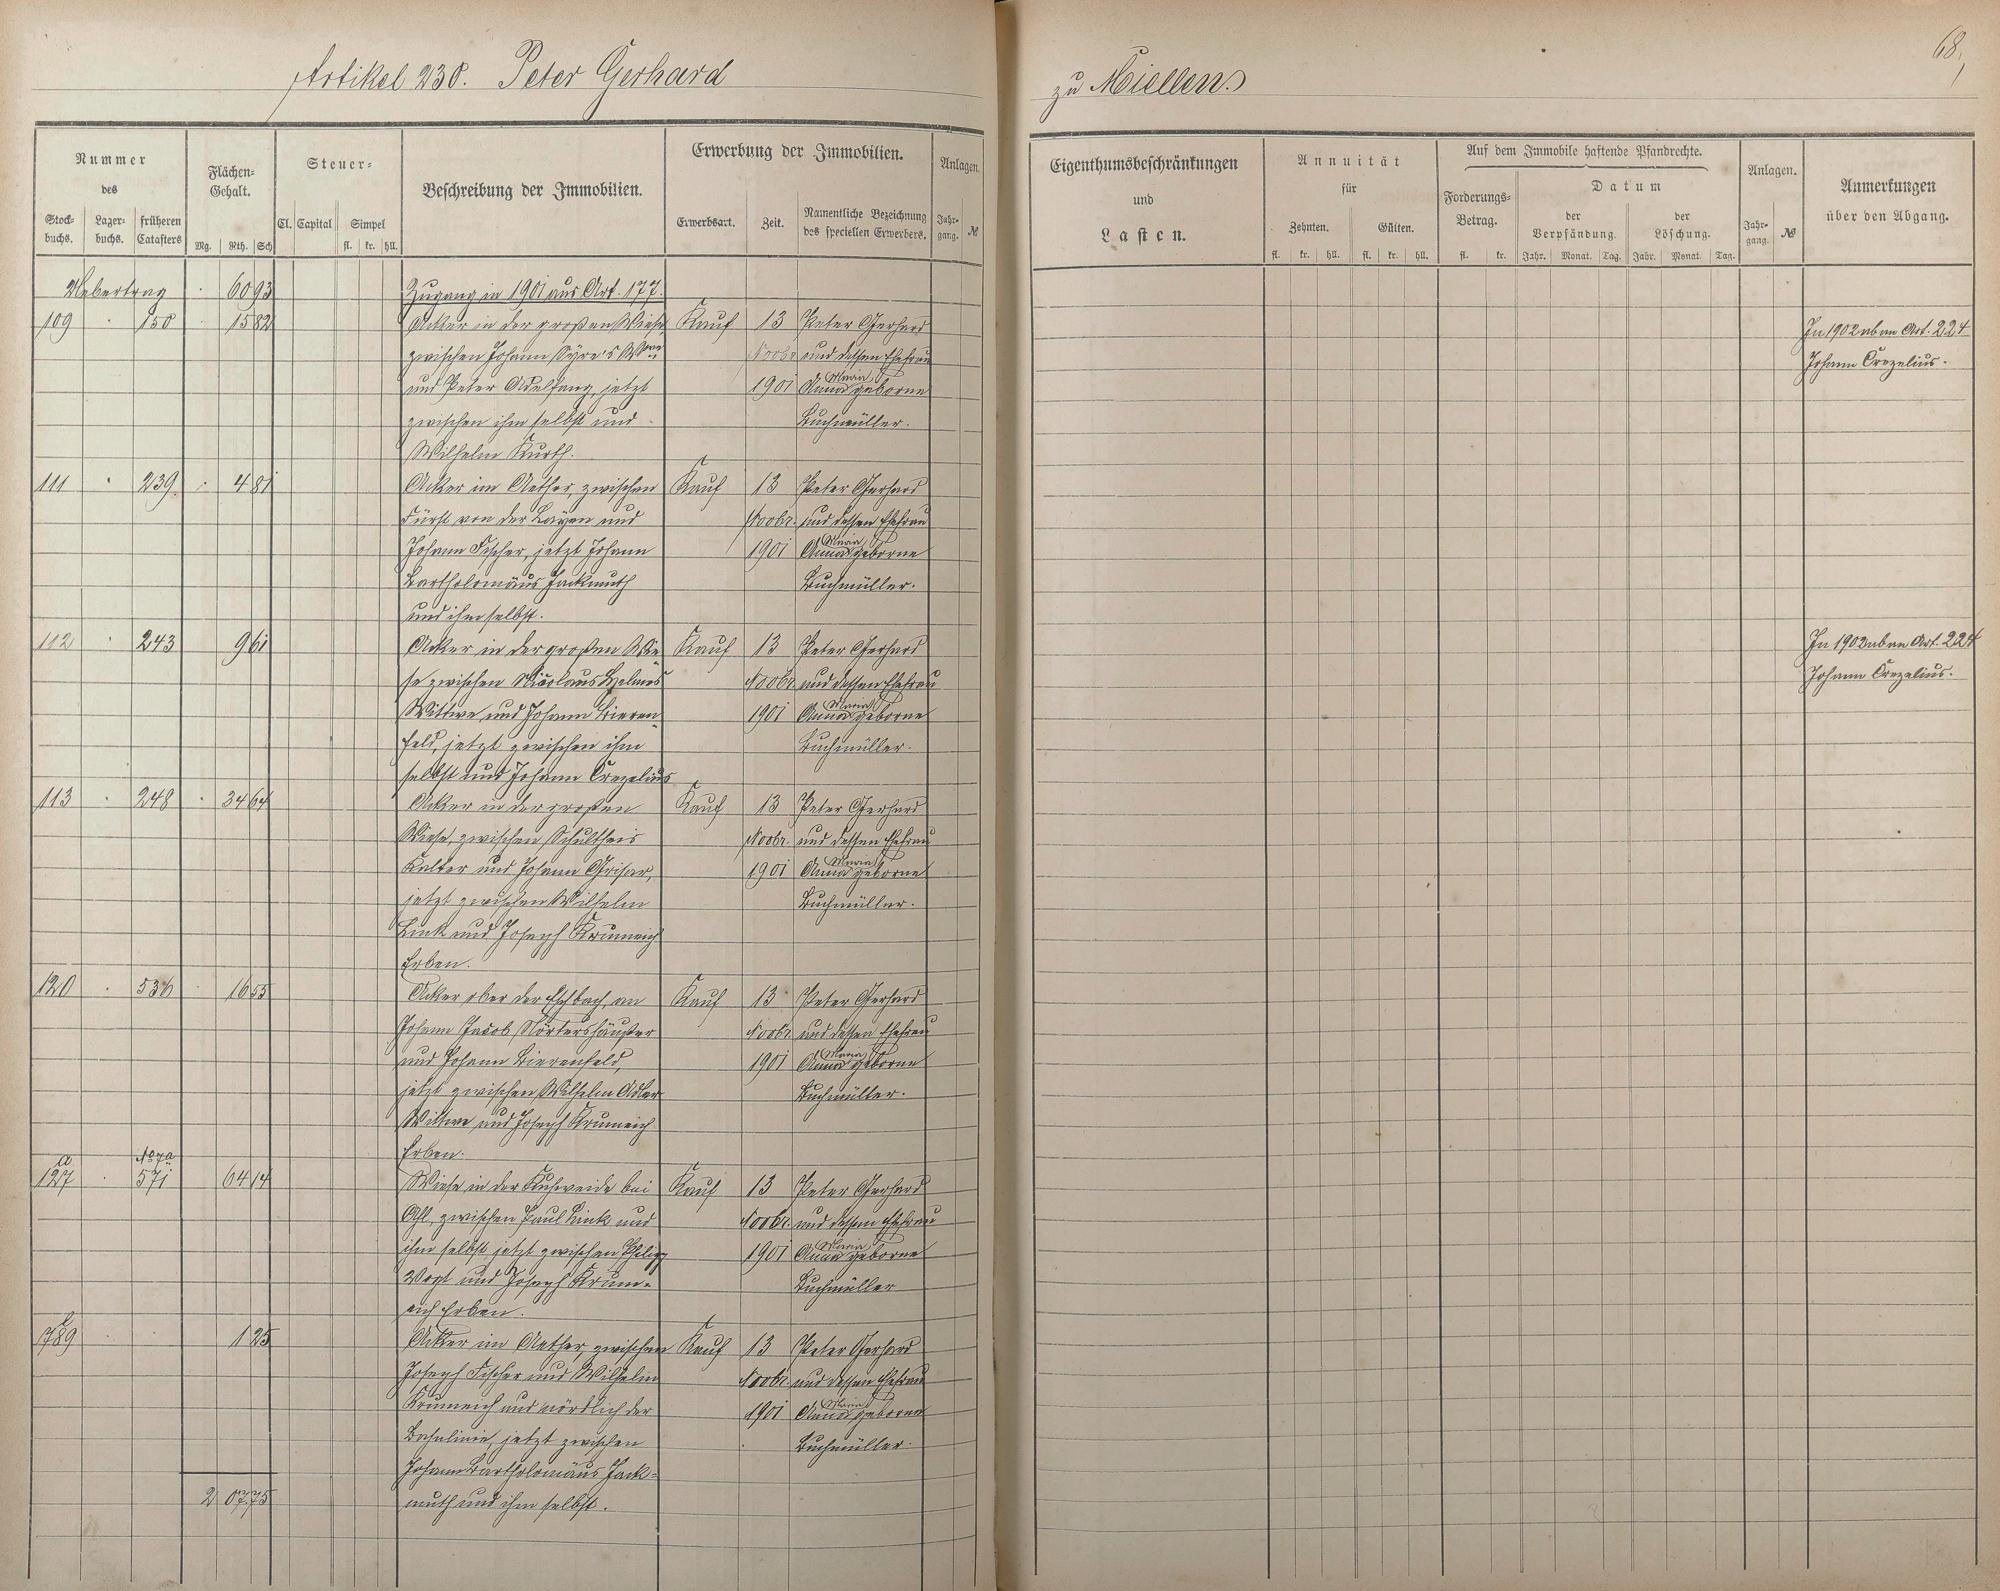 Artikel 230. Peter Gerhard
zu Miellen.
68,
Nummer
des
Stock-
buchs.
Lager-
buchs.
früheren
Catasters
Flächen-
Gehalt.
Mg. Rth. Sch
Steuer-
Cl. Capital Simpel
fl. kr. hll.
Beschreibung der Immobilien.
Erwerbung der Immobilien.
Erwerbsart. Zeit.
Namentliche Bezeichnung
des speciellen Erwerbers.
Anlagen.
Jahr-
gang. №
Eigenthumsbeschränkungen
und
Lasten.
Annuität
für
Zehnten. Gülten.
fl. kr. hll. fl. kr. hll.
Auf dem Immobile haftende Pfandrechte.
Forderungs-
Betrag.
fl. kr.
Datum
der
Verpfändung.
der
Löschung.
Jahr. Monat. Tag. Jahr. Monat. Tag.
Anlagen.
Jahr-
gang. №
Anmerkungen
über den Abgang.
Uebertrag 60 93 Zugang in 1901 aus Art. 177.
109 150 15 82 Acker in der großen Wiese, Kauf 13 Peter Gerhard
zwischen Johann Syre's Wwe Novbr. und dessen Ehefrau
und Peter Adelfang, jetzt 1901 Anna Maria geborne
zwischen ihm selbst und Buchmüller.
Wilhelm Kurth.
In 1902 ab an Art. 224
Johann Crezelius.
111 239 4 81 Acker im Aether, zwischen Kauf 13 Peter Gerhard
Fürst von der Layen und Novbr. und dessen Ehefrau
Johann Fischer, jetzt Johann 1901 Anna Maria geborne
Bartholomäus Jackmuth Buchmüller.
und ihm selbst.
112 243 9 61 Acker in der großen Wie- Kauf 13 Peter Gerhard
se zwischen Nicolaus Helmes Novbr. und dessen Ehefrau
Wittwe und Johann Bieren- 1901 Anna Maria geborne
feld, jetzt zwischen ihm Buchmüller.
selbst und Johann Crezelius
In 1902 ab an Art. 224
Johann Crezelius.
113 248 34 64 Acker in der großen Kauf 13 Peter Gerhard
Wiese, zwischen Schultheis Novbr. und dessen Ehefrau
Kalter und Johann Grisar, 1901 Anna Maria geborne
jetzt zwischen Wilhelm Buchmüller.
Link und Joseph Krumeich
Erben.
120 536 16 55 Acker ober der Eschbach, an Kauf 13 Peter Gerhard
Johann Jacob Nörtershäuser Novbr. und dessen Ehefrau
und Johann Bierenfeld, 1901 Anna Maria geborne
jetzt zwischen Wilhelm Adler Buchmüller.
Wittwe und Joseph Krumeich
Erben.
a
127 571 64 14 Wiese in der Kuhweide bei Kauf 13 Peter Gerhard
Ahl, zwischen Paul Link und Novbr. und dessen Ehefrau
ihm selbst, jetzt zwischen Philipp 1901 Anna Maria geborne
Vogt und Joseph Krum- Buchmüller
eich Erben.
1789 1 25 Acker im Aether, zwischen Kauf 13 Peter Gerhard
Joseph Fischer und Wilhelm Novbr. und dessen Ehefrau
Krumeich und nördlich der 1901 Anna Maria geborne
Bahnlinie, jetzt zwischen Buchmüller.
Johann Bartholomäus Jack-
2 07 75 muth und ihm selbst.